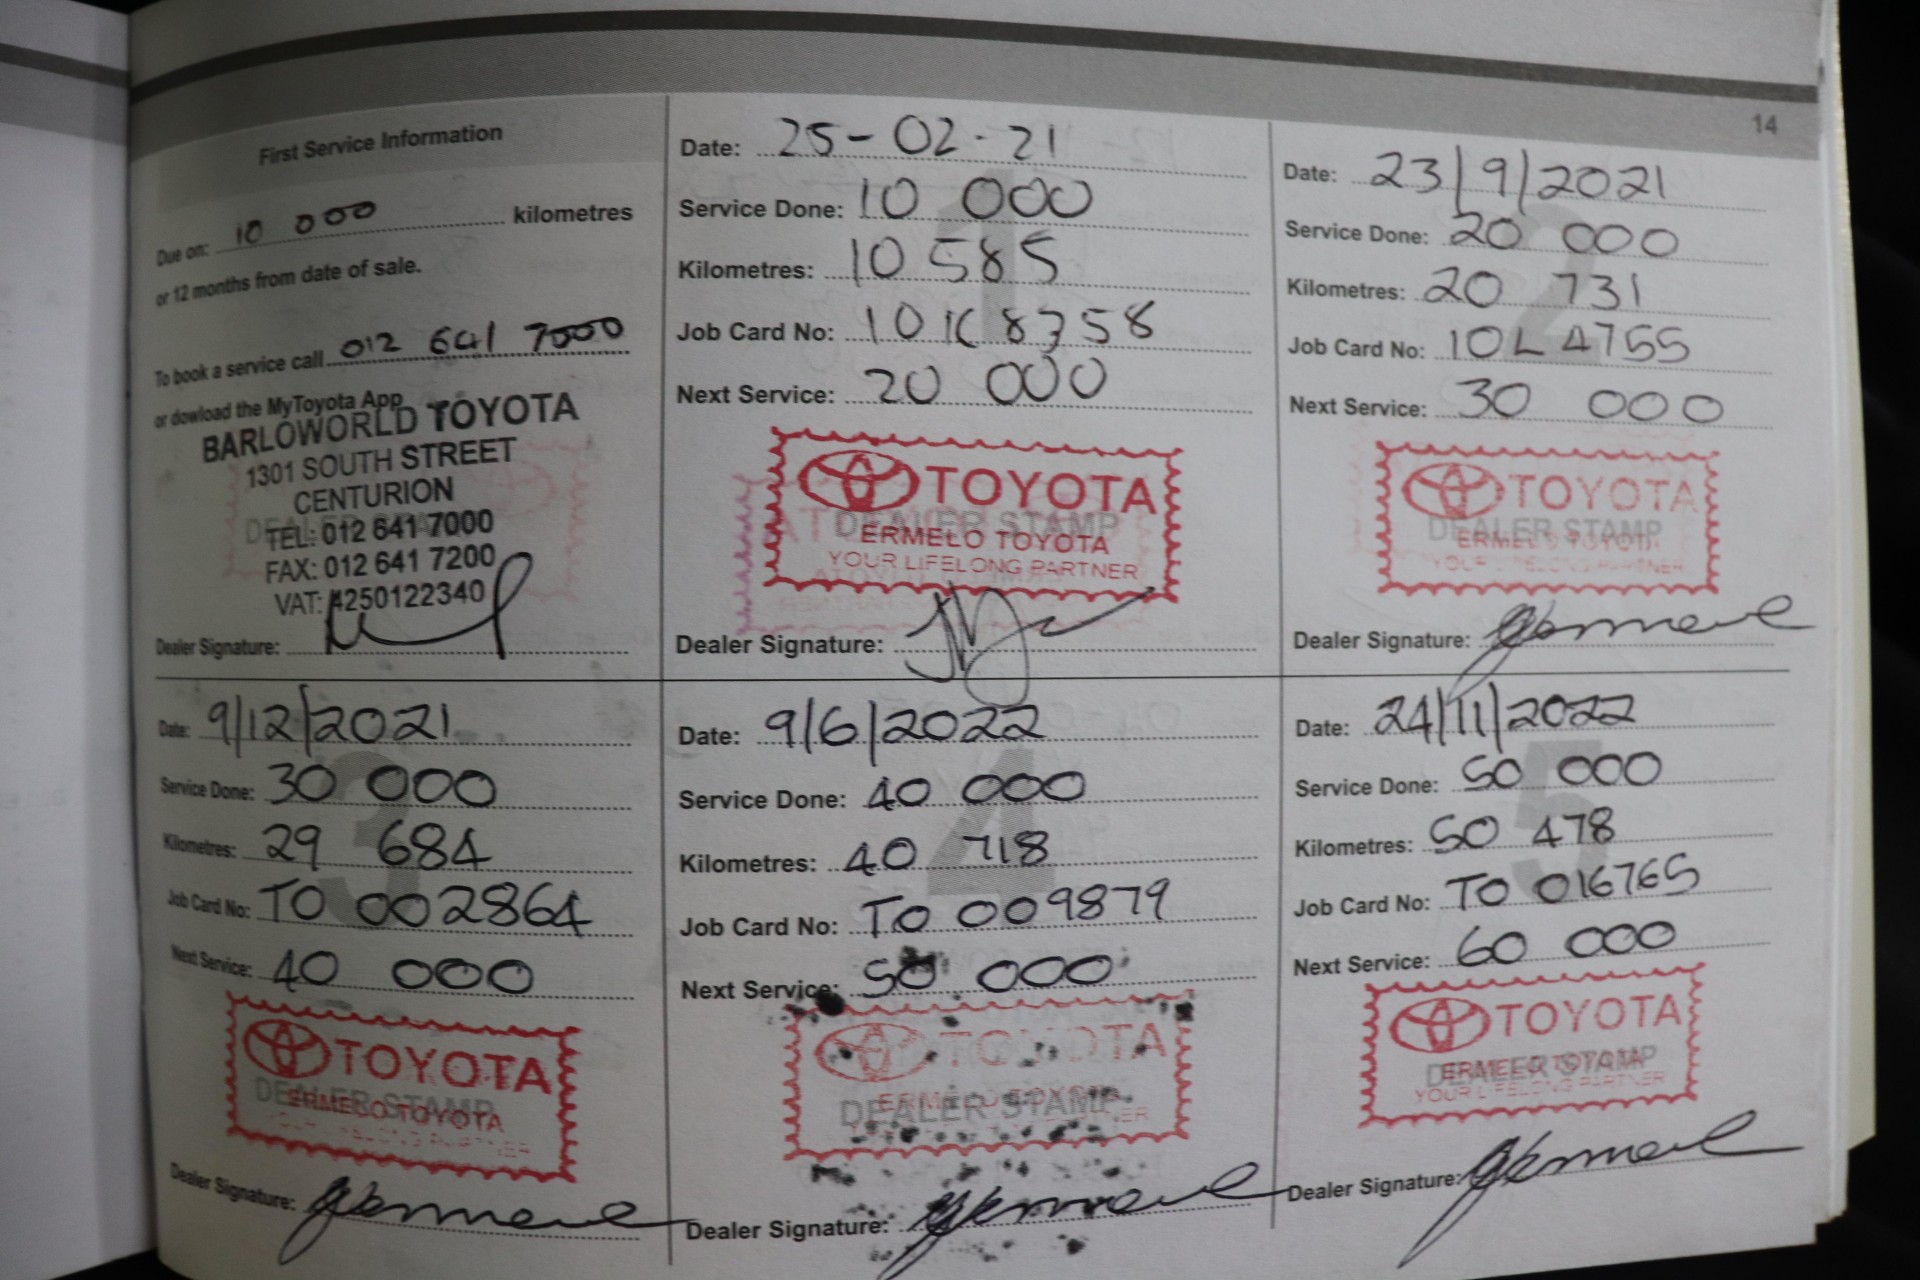 14
First Service Information
Due on: 10 000 kilometres
or 12 months from date of sale.
To book a service call 012 641 7000
or dowload the MyToyota App
BARLOWORLD TOYOTA
1301 SOUTH STREET
CENTURION
DEALER
TEL: 012 641 7000
FAX: 012 641 7200
VAT: 4250122340
Dealer Signature:
Date: 25-02-21
Service Done: 10 000
Kilometres: 10 585
1
Job Card No: 10K8358
Next Service: 20 000
TOYOTA
DEALER STAMP
ERMELO TOYOTA
YOUR LIFELONG PARTNER
Dealer Signature:
Date: 23/9/2021
Service Done: 20 000
Kilometres: 20 731
2
Job Card No: 10L4755
Next Service: 30 000
TOYOTA
DEALER STAMP
ERMELO TOYOTA
YOUR LIFELONG PARTNER
Dealer Signature:
Date: 9/12/2021
Service Done: 30 000
Kilometres: 29 684
3
Job Card No: TO 002864
Next Service: 40 000
TOYOTA
DEALER STAMP
ERMELO TOYOTA
Dealer Signature:
Date: 9/6/2022
Service Done: 40 000
Kilometres: 40 718
4
Job Card No: TO 009879
Next Service: 50 000
TOYOTA
DEALER STAMP
Dealer Signature:
Date: 24/11/2022
Service Done: 50 000
Kilometres: 50 478
5
Job Card No: TO 016765
Next Service: 60 000
TOYOTA
ERMELO TOYOTA
DEALER STAMP
YOUR LIFELONG PARTNER
Dealer Signature: